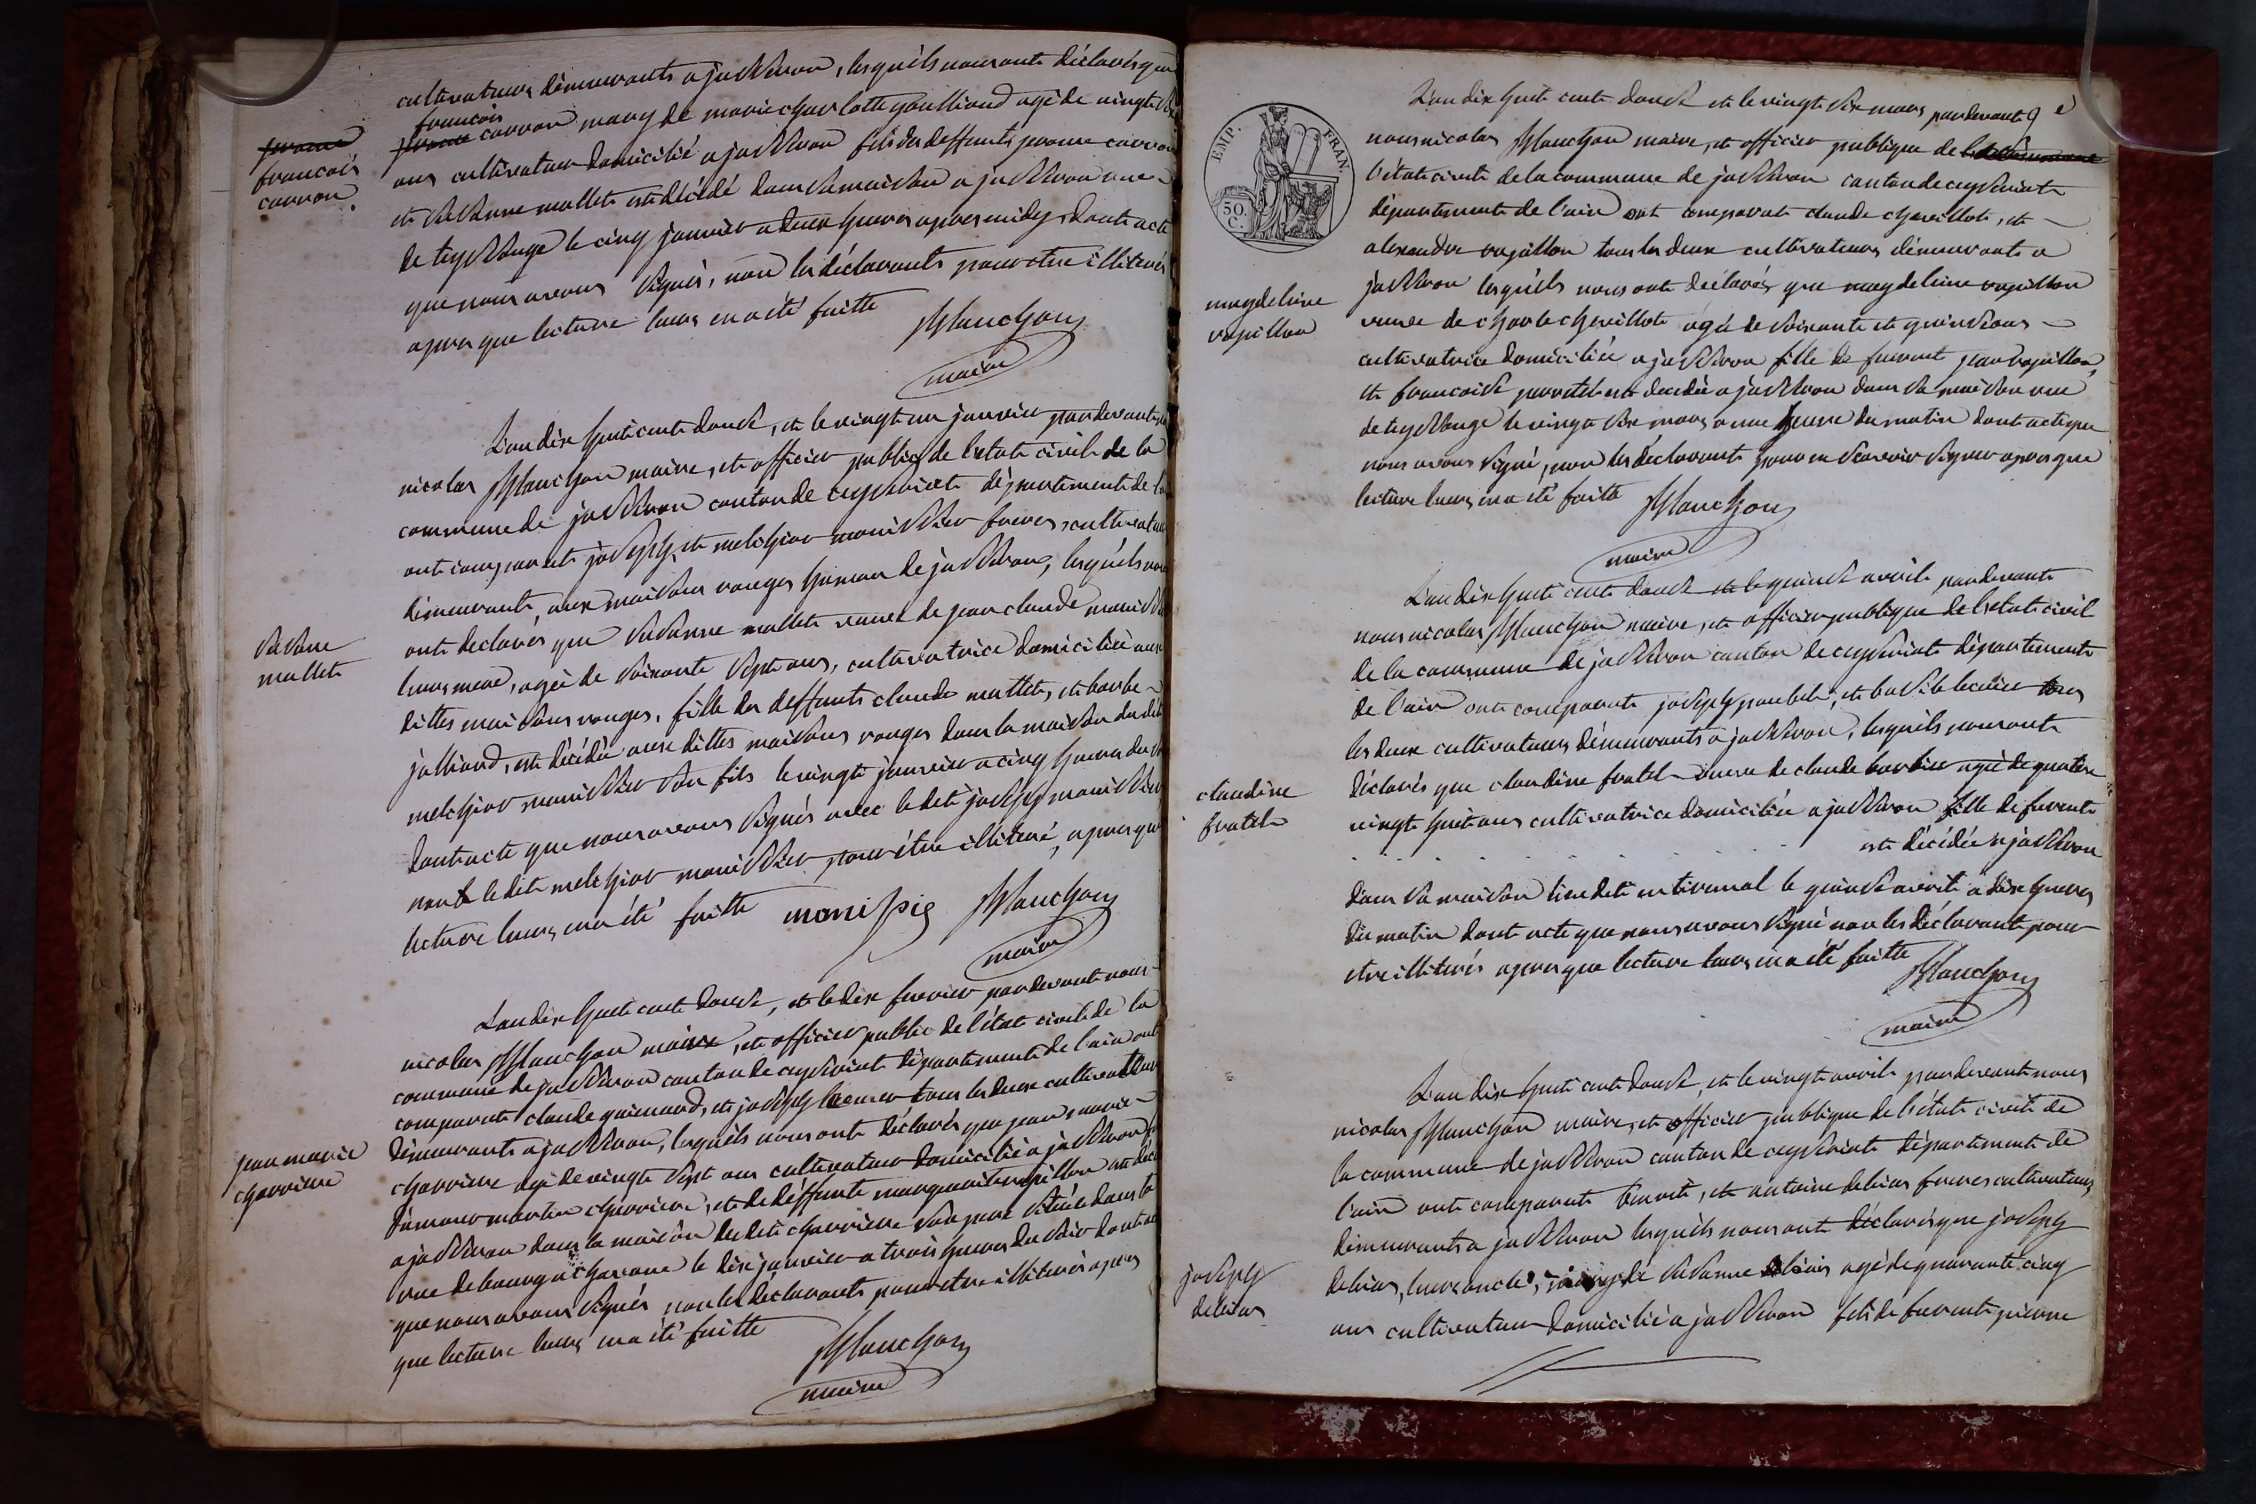 cultivateurs démeurants a jasseron, lesquéls nous onts déclarés que
françois
jerome carron mary de marie charlotte gouilloud agé de vingt six
jerome
françois
carron.
ans cultivateur domicilié a jasseron fils des deffunts jerome carron
et susanne mallet est décédé dans sa maison a jasseron rue
de teyssonge le cinq janvier a deux heures apres midy, dont acte
que nous avons signés, non les déclarants pour être illiterés
apres que lecture leurs en a été faitte
Manchon
maire
L'an dix huit cent douse, et le vingt un janvier pardevant
nicolas Manchon maire, et officier public de l'état civil de la
commune de jasseron canton de ceyseriat département de l'ain
ont comparut joseph, et melchior monissier freres, cultivateurs
démeurants, aux maisons rouges hameau de jasseron, lesquéls nous
ont declarés que susanne mallet veuve de jean claude monissier
susanne
mallet
leurs mere, agée de soixante sept ans, cultivatrice domiciliée aux
dittes maisons rouges, fille des deffunts claude mallet, et barbe
jolliand, est décédée aux dittes maisons rouges dans la maison du dit
melchior monissier son fils le vingt janvier a cinq heures du
dont acte que nous avons signés avec le dit joseph monissier
non le dit melchior monissier pour être illiteré, apres que
lecture leurs en a été faitte monissie Manchon
maire
L'an dix huit cent douse, et le dix fevrier pardevant nous
nicolas Manchon maire, et officier public de l'état civil de la
commune de jasseron canton de ceyseriat département de l'ain ont
comparut claude guinard, et joseph tous les deux cultivateurs
démeurants a jasseron, lesquéls nous ont déclarés que jean marie
jean marie
charriere
charriere agé de vingt sept ans cultivateur domicilié a jasseron
martin charriere, et de déffunte marguerite vapillon est décédé
a jasseron dans la maison du dit charriere son pere située dans la
rue de bourg a charanne le dix janvier a trois heures du soir dont acte
que nous avons signés non les déclarants pour etre illiterés apres
que lecture leurs en a été faitte
Manchon
maire
L'an dix huit cent douse et le vingt six mars pardevant 9 e
nous nicolas Manchon maire, et officier publique de
l'état civil de la commune de jasseron canton de ceyseriat
département de l'ain ont comparut claude chevillot, et
alexandre vapillon tous les deux cultivateurs démeurants a
jasseron lesquéls nous ont déclarés que magdeleine vapillon
magdeleine
vapillon
veuve de charle chevillot agée de soixante et quinse ans
cultivatrice domiciliée a jasseron fille de furent jean vapillon,
et françoise perret est decédée a jasseron dans sa maison rue
de teyssonge le vingt six mars a une heure du matin dont acte que
nous avons signé, non les déclarant pour ne scavoir signer apres que
lecture leurs en a été faitte Manchon
maire
L'an dix huit cent douse et le quinse avril pardevant
nous nicolas Manchon maire, et officier publique de l'état civil
de la commune de jasseron canton de ceyseriat département
de l'ain ont comparut joseph paubel, et basile tous
les deux cultivateurs démeurants a jasseron, lesquéls nous ont
déclarés que claudine fratel veuve de claude barbier agée de quatre
claudine
fratel
vingt huit ans cultivatrice domiciliée a jasseron fille de furent
. . . . . . . . est décédée a jasseron
dans sa maison lieu dit entremal le quinse avril a dix heures
du matin dont acte que nous avons signé non les déclarant pour
etre illiterés apres que lecture leurs en a été faitte
Manchon
maire
L'an dix huit cent douse, et le vingt avril pardevant nous
nicolas Manchon maire, et officier publique de l'état civil de
la commune de jasseron canton de ceyseriat département de
l'ain ont comparut benoit, et antoine debias freres cultivateurs
démeurants a jasseron lesquéls nous ont déclarés que joseph
joseph
debias
debias, leurs oncle, mary de susanne debias agé de quarante cinq
ans cultivateur domicilié a jasseron fils de furent pierre
EMP. FRAN.
50 C.